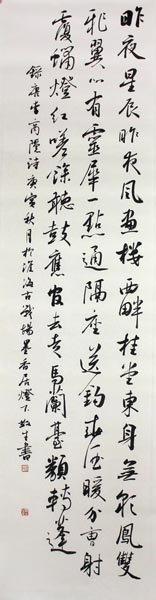 昨夜星辰昨夜風畫樓西畔桂堂東身無彩鳳雙
飛翼心有靈犀一點通隔座送鈎春酒暖分曹射
覆蠟燈紅嗟餘聽鼓應官去走馬蘭臺類轉蓬
錄唐李商隱詩庚寅秋月於淮海古戰場墨香居燈下生書